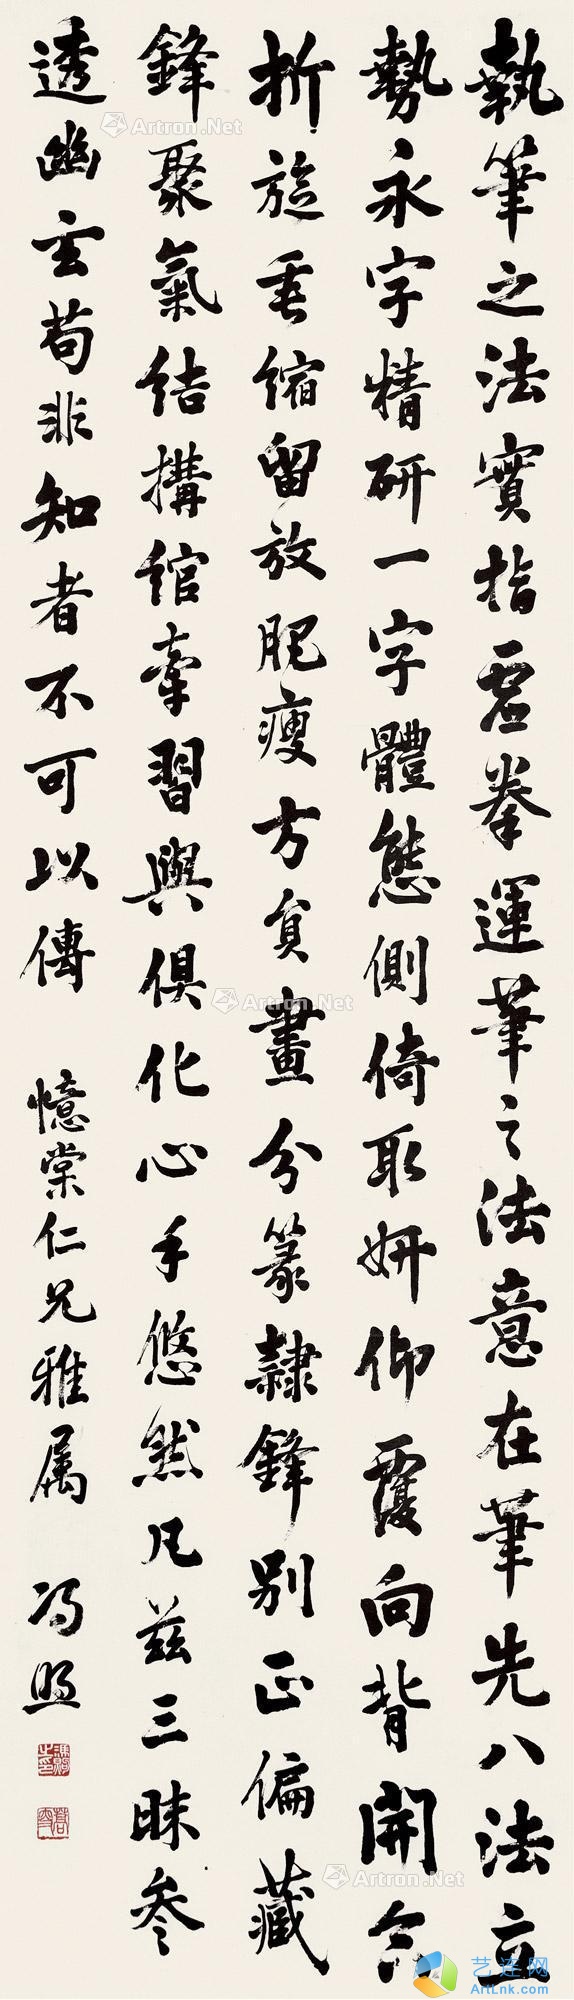 執筆之法實指虛拳運筆之法意在筆先八法立
勢永字精研一字體態側倚取妍仰覆向背開合
折旋垂縮留放肥瘦方員畫分篆隸鋒別正偏藏
鋒聚氣結搆綰牽習與俱化心手悠然凡茲三昧參
透幽玄苟非知者不可以傳
憶棠仁兄雅属
馮煦
Artron.Net
Artron.Net
Artron.Net
Artron.Net
Artron.Net
艺连网
ArtLnk.com